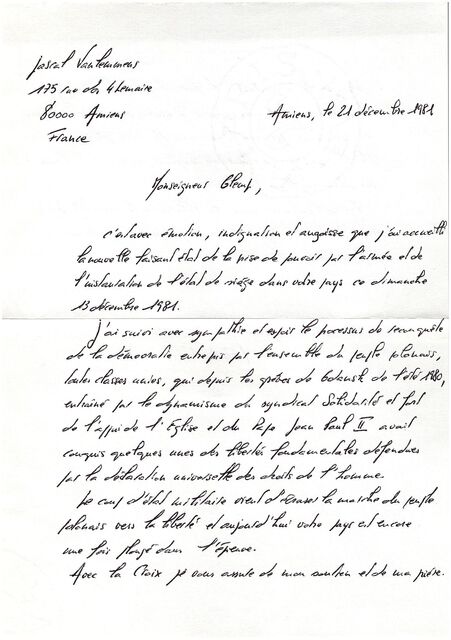 Pascal Vanlemmens
175 rue des 4 Lemaire
80000 Amiens
France
Amiens, le 21 décembre 1981
Monseigneur Glemp,
c'est avec émotion, indignation et angoisse que j'ai accueilli
la nouvelle faisant état de la prise de pouvoir par l'armée et de
l'instauration de l'état de siège dans votre pays ce dimanche
13 décembre 1981.
J'ai suivi avec sympathie et espoir le processus de reconquête
de la démocratie entrepris par l'ensemble du peuple polonais,
toutes classes unies, qui depuis les grèves de Gdansk de l'été 1980,
entraîné par le dynamisme du syndicat Solidarité et fort
de l'appui de l'Eglise et du Pape Jean Paul II avait
conquis quelques unes des libertés fondamentales défendues
par la déclaration universelle des droits de l'homme.
Le coup d'état militaire vient d'écraser la marche du peuple
polonais vers la liberté et aujourd'hui votre pays est encore
une fois plongé dans l'épreuve.
Avec la Croix je vous assure de mon soutien et de ma prière.